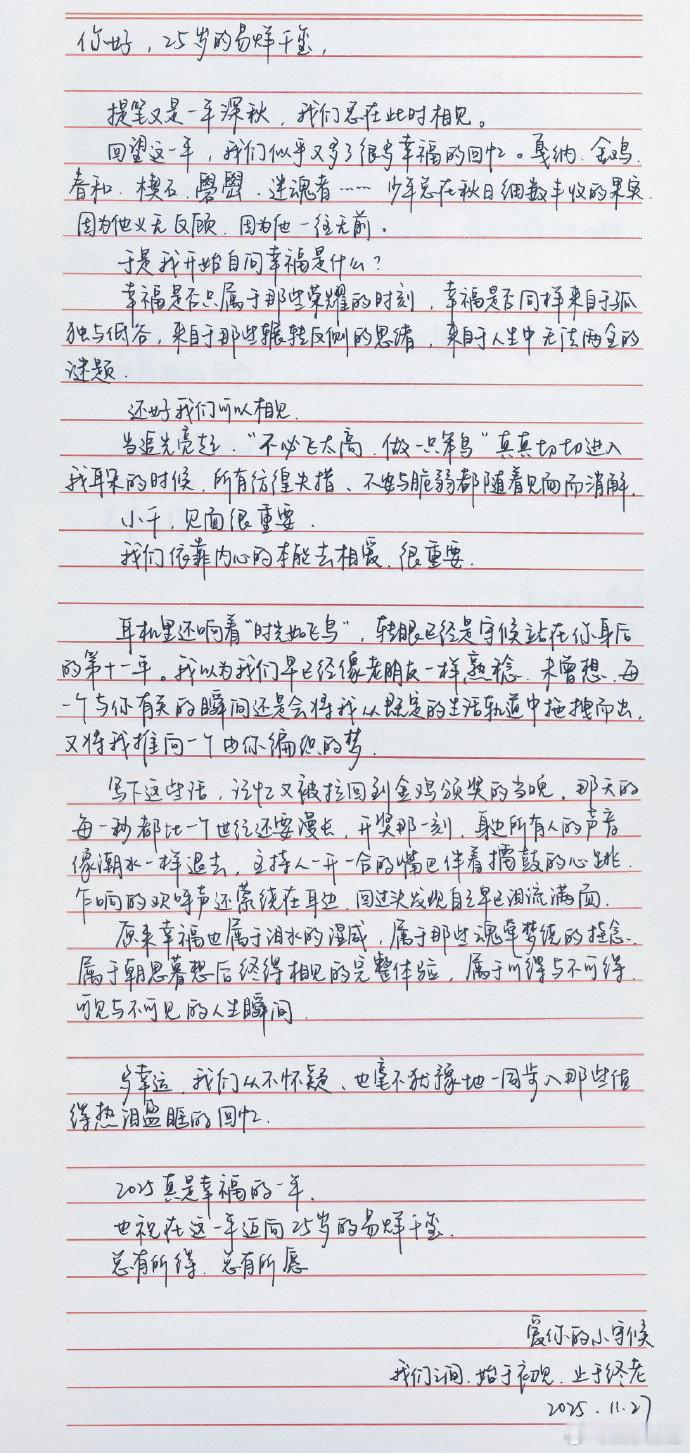 你好，25岁的易烊千玺，
提笔又是一年深秋，我们总在此时相见。
回望这一年，我们似乎又多了很多幸福的回忆。戛纳、金鸡、
春和、楔石、礐嶨、迷魂者……少年总在秋日细数丰收的果实
因为他义无反顾，因为他一往无前。
于是我开始自问幸福是什么？
幸福是否只属于那些荣耀的时刻，幸福是否同样来自于孤
独与低谷，来自于那些辗转反侧的思绪，来自于人生中无法两全的
谜题.
还好我们可以相见.
当追光亮起，“不必飞太高，做一只笨鸟”真真切切进入
我耳朵的时候，所有彷徨失措、不安与脆弱都随着见面而消解.
小千，见面很重要.
我们依靠内心的本能去相爱，很重要.
耳机里还响着“时光如飞鸟”，转眼已经是守候站在你身后
的第十一年。我以为我们早已经像老朋友一样熟稔，未曾想，每
一个与你有关的瞬间还是会将我从既定的生活轨道中拖拽而出，
又将我推向一个由你编织的梦.
写下这些话，记忆又被拉回到金鸡颁奖的当晚，那天的
每一秒都比一个世纪还要漫长，开奖那一刻，身边所有人的声音
像潮水一样退去，主持人一开一合的嘴巴伴着擂鼓的心跳，
乍响的欢呼声还萦绕在耳边，回过头发现自己早已泪流满面.
原来幸福也属于泪水的湿咸，属于那些魂牵梦绕的挂念，
属于朝思暮想后终得相见的完整体验，属于可得与不可得，
可见与不可见的人生瞬间.
多幸运，我们从不怀疑，也毫不犹豫地一同步入那些值
得热泪盈眶的回忆.
2025真是幸福的一年.
也祝在这一年迈向25岁的易烊千玺.
总有所得，总有所愿
爱你的小守候
我们之间，始于初见，止于终老
2025.11.27